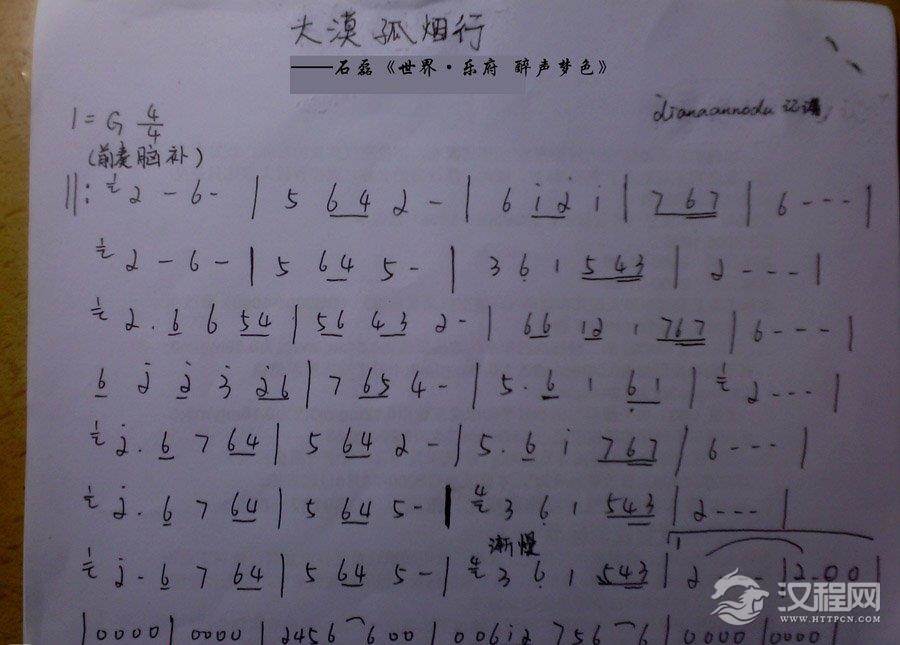 大漠孤烟行
——石磊《世界·乐府 醉声梦色》
1=G 4/4
dianaannodu 记谱
(前奏脑补)
||: 2 - 6 - | 5 64 2 - | 6 i2 i | 767 | 6 - - - |
2 - 6 - | 5 64 5 - | 3 6 1 543 | 2 - - - |
2. 6 6 54 | 56 43 2 - | 66 12 1 767 | 6 - - - |
6 2 2 3 26 | 7 65 4 - | 5. 6 1 61 | 2 - - - |
2. 6 7 64 | 5 64 2 - | 5. 6 i 767 | 6 - - - |
2. 6 7 64 | 5 64 5 - | 3 6 1 543 | 2 - - - |
渐慢
2. 6 7 64 | 5 64 5 - | 3 6 1 543 | 2 - - - | 2-00 |
|0000|0000|2456 600|006i2 756 6|0000|0000|
汉程网
WWW.HTTPCN.COM